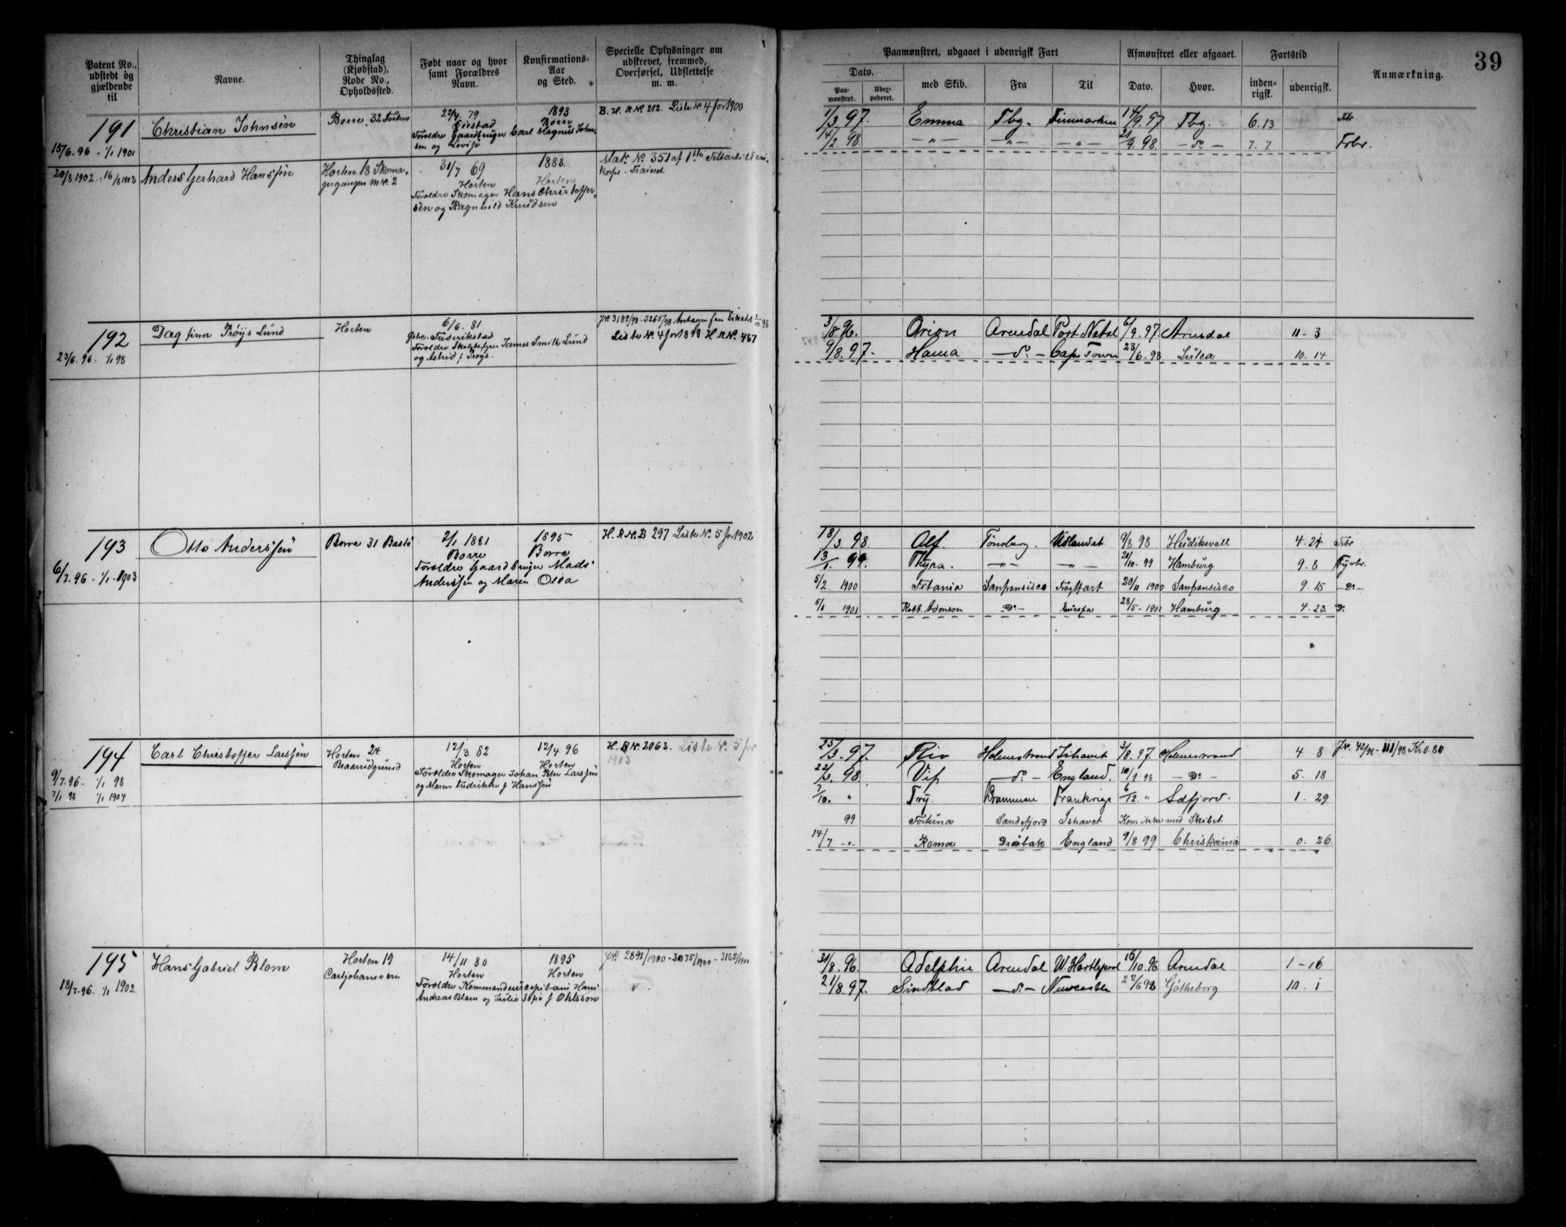 39
Patent No., udstedt og gjældende til
Navne.
Thinglag (Kjøbstad), Rode No., Opholdssted.
Født naar og hvor samt Forældres Navn.
Konfirmations-Aar og Sted.
Specielle Oplysninger om udskrevet, fremmed, Overførsel, Udslettelse m. m.
Paamønstret, udgaaet i udenrigsk Fart
Afmønstret eller afgaaet.
Fartstid
Anmærkning.
Dato.
Paamønstret.
med Skib.
Fra
Til
Dato.
Hvor.
indenrigsk.
udenrigsk.
191
15/6.96 - 1/1 1901
Christian Johnsen
Borre, 32
22/4 79
Forældre Gaardbruger Carl Magnus Johnsen og Lovise
1893
Borre
B. H. R. No. 212. Liste No. 4 for 1900
1/3.97. Emma Tbg. Finmarken 14/9.97 Tbg. 6.13
14/2 98 — " — — " — — " — 21/9.98. — Do — 7. 7 Frbr.
20/3 1902
Anders Gerhard Hanssen
Horten B. Skomagergangen Mk. 2
31/7 69
Horten
Forældre Skomager Hans Christoffersen og Ragnhild Knudsen
1883.
Horten
Mat. No. 351 af 1ste
Korps. Trained
192
23/6.96 - 1/1 98
Dag finn Prøys Lund
Horten
6/6. 81
Frederikstad
Forældre James Smith Lund og Astrid f. Prøys
Liste No. 4 for 1898 H.R.No. 487
3/8 96. Orion Arendal Port Natal 6/9.97 Arendal 11 - 3
9/8.97. Hama — Do — Cap Town 23/6.98 Lulea 10. 14
193
6/7.96 - 1/1.1903
Otto Anderssen
Borre 31 Bastø
2/1 1881
Borre
Forældre Gaardbruger Mads Anderssen og Maren Olea
1895
Borre
H.R.No. B 297 Liste No. 5 for 1902
18/3.98. Alf. Tønsberg. Udlandet 9/8 98 Hudiksvall 4. 24
13/1. 99. Thyra. — " — — " — 20/10. 99 Hamburg 9. 8 Fyrbr.
5/2 1900 Titania Sanfransisco Frøgtfart 20/11 1900 Sanfransisco 9. 15 — Do —
5/1 1901 — Do — Europa 28/5 - 1901 Hamburg 4. 23. Do
194
9/7.96. 1/1 98
7/1 98 1/1 1904
Carl Christoffer Larssen
Horten 24
12/3. 82
Horten
Forældre Skomager Johan Peter Larssen og Maren Fredrikke f. Hanssen
12/4 96
Horten
H. R. No. 2063. Liste No. 5 for 1903
25/3.97. Rio Holmestrand Ishavet 3/8.97. Holmestrand 4 8
22/3. 98. Vif — Do — England. 10/9 98 — Do — 5. 18
7/10. " Try. Drammen Frankrige 6/12. " Sdfjord. 1. 29
99 Fortuna Sandefjord Ishavet Kom ikke med Skibet
14/7 - " - Roma Drøbak England 9/8 99 Christiania 0. 26
195
18/7.96. 1/1 1902
Hans Gabriel Blom
Horten 19
Carljohansvern
14/11 80
Horten
Forældre Kommandørcapitain Hans Andreas Blom og f. Ohlsson
1895
Horten
31/8. 96. Adelphie Arendal W. Hartlepool 16/10.96 Arendal 1 - 16
21/8.97. Sindblad — Do — Newcastle 22/6 98 Gøtheborg 10. 1